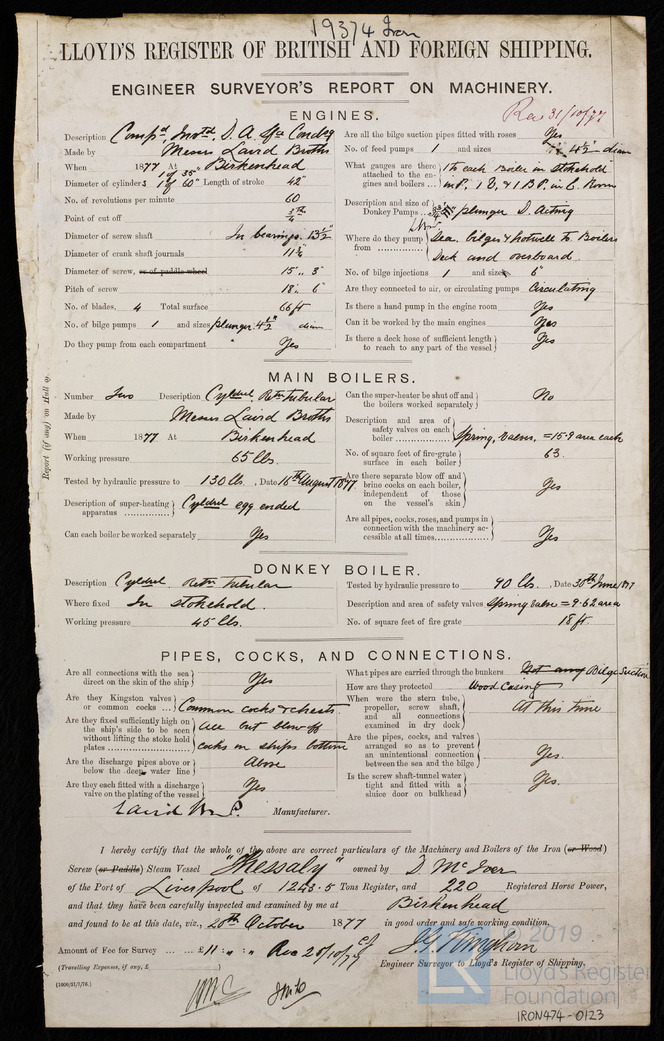 19374 Iron
LLOYD'S REGISTER OF BRITISH AND FOREIGN SHIPPING.
ENGINEER SURVEYOR'S REPORT ON MACHINERY.
Rec 31/10/77
ENGINES.
Description Compd, Invtd, D. A. Sfce Condsg
Made by Messrs Laird Broths
When 1877 At Birkenhead
Diameter of cylinders 1 of 35" 1 of 60" Length of stroke 42"
No. of revolutions per minute 60
Point of cut off
Diameter of screw shaft In bearings. 13½"
Diameter of crank shaft journals
Diameter of screw, or of paddle wheel 15 " 3"
Pitch of screw 18 " 6"
No. of blades, 4 Total surface 66 ft
No. of bilge pumps 1 and sizes plunger 4½" diam
Do they pump from each compartment Yes
Are all the bilge suction pipes fitted with roses Yes
No. of feed pumps 1 and sizes 4½" diam
What gauges are there attached to the engines and boilers 1 to each Boiler in Stokehold
in P., 1 B, & 1 B.P. in E. Room
Description and size of Donkey Pumps plunger D. Acting
Where do they pump from Sea, bilges & hotwell to Boilers
Deck and overboard
No. of bilge injections 1 and sizes 6"
Are they connected to air, or circulating pumps Circulating
Is there a hand pump in the engine room Yes
Can it be worked by the main engines Yes
Is there a deck hose of sufficient length to reach to any part of the vessel Yes
Report (if any) on Hull op.
MAIN BOILERS.
Number Two Description Cyldrl Retn Tubular
Made by Messrs Laird Broths
When 1877 At Birkenhead
Working pressure 65 lbs.
Tested by hydraulic pressure to 130 lbs. , Date 16th August 1877
Description of super-heating apparatus Cyldrl egg ended
Can each boiler be worked separately Yes
Can the super-heater be shut off and the boilers worked separately No
Description and area of safety valves on each boiler Spring, Valves, = 15.9 area each
No. of square feet of fire-grate surface in each boiler 63.
Are there separate blow off and brine cocks on each boiler, independent of those on the vessel's skin Yes
Are all pipes, cocks, roses, and pumps in connection with the machinery accessible at all times Yes
DONKEY BOILER.
Description Cyldrl Retn Tubular
Where fixed In stokehold.
Working pressure 45 lbs.
Tested by hydraulic pressure to 90 lbs. , Date 30th June 1877
Description and area of safety valves Spring Valve = 9.62 area
No. of square feet of fire grate 18 ft.
PIPES, COCKS, AND CONNECTIONS.
Are all connections with the sea direct on the skin of the ship Yes
Are they Kingston valves or common cocks Common cocks & chests.
Are they fixed sufficiently high on the ship's side to be seen without lifting the stoke hold plates All but blow off
cocks on ships bottom
Are the discharge pipes above or below the deep water line Above
Are they each fitted with a discharge valve on the plating of the vessel Yes
Laird Bros. Manufacturer.
What pipes are carried through the bunkers Not any Bilge Suction
How are they protected Wood Casing
When were the stern tube, propeller, screw shaft, and all connections examined in dry dock At this time
Are the pipes, cocks, and valves arranged so as to prevent an unintentional connection between the sea and the bilge Yes.
Is the screw shaft-tunnel water tight and fitted with a sluice door on bulkhead Yes.
I hereby certify that the whole of the above are correct particulars of the Machinery and Boilers of the Iron (or Wood)
Screw (or Paddle) Steam Vessel "Thessaly" owned by D. McIver
of the Port of Liverpool of 1243.5 Tons Register, and 220 Registered Horse Power,
and that they have been carefully inspected and examined by me at Birkenhead
and found to be at this date, viz., 20th October 1877 in good order and safe working condition.
Amount of Fee for Survey ... ... £11 : " : " Rec 25/10/77
(Travelling Expenses, if any, £ )
Engineer Surveyor to Lloyd's Register of Shipping.
(1000/21/7/76.)
© 2019
LR
Lloyd's Register
Foundation
IRON474-0123